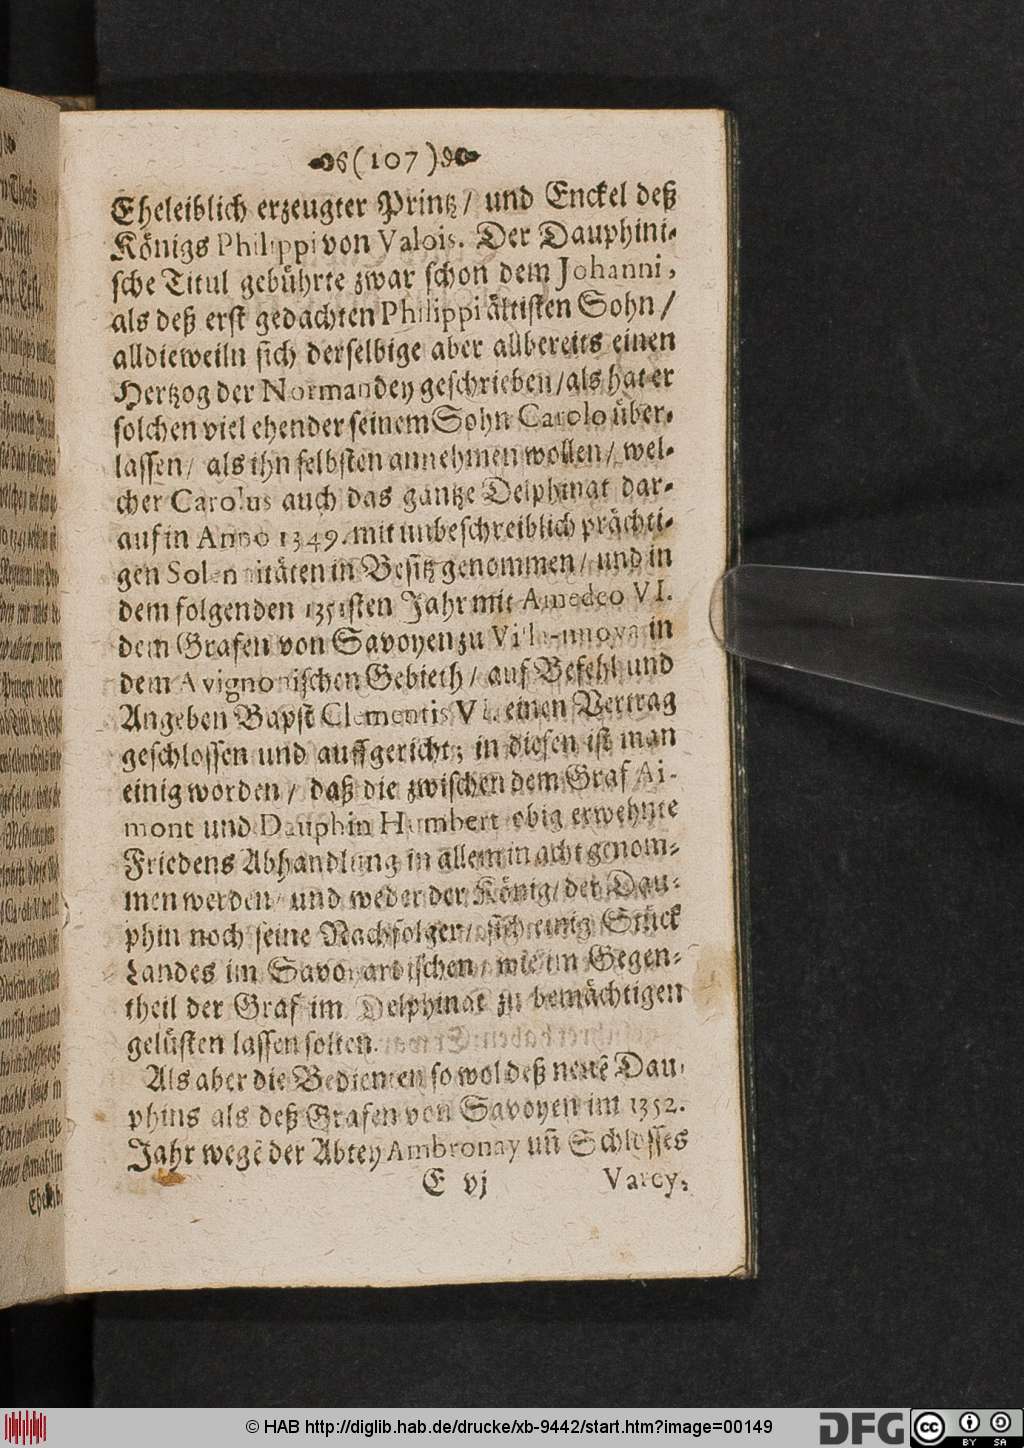 (107)
Eheleiblich erzeugter Printz / und Enckel deß
Königs Philippi von Valois. Der Dauphini-
sche Titul gebührte zwar schon dem Johanni,
als deß erst gedachten Philippi ältisten Sohn /
alldieweiln sich derselbige aber allbereits einen
Hertzog der Normandey geschrieben / als hat er
solchen viel ehender seinem Sohn Carolo über-
lassen / als ihn selbsten annehmen wollen / wel-
cher Carolus auch das gantze Delphinat dar-
auf in Anno 1349. mit unbeschreiblich prächti-
gen Solennitäten in Besitz genommen / und in
dem folgenden 1351sten Jahr mit Amedeo VI.
dem Grafen von Savoyen zu in
dem Avignonischen Gebieth / auf Befehl und
Angeben Bapst Clementis VI. einen Vertrag
geschlossen und auffgericht; in diesen ist man
einig worden / daß die zwischen dem Graf Ai-
mont und Dauphin Humbert obig erwehnte
Friedens Abhandlung in allem in acht genom-
men werden / und weder der König / der Dau-
phin noch seine Nachfolger / sich einig Stück
Landes im Savoyardischen / wie im Gegen-
theil der Graf im Delphinat zu bemächtigen
gelüsten lassen solten.
Als aber die Bedienten so wol deß neuē Dau-
phins als deß Grafen von Savoyen im 1352.
Jahr wegē der Abtey Ambronay uñ Schlosses
E vj Varey,
© HAB http://diglib.hab.de/drucke/xb-9442/start.htm?image=00149
DFG
cc BY SA